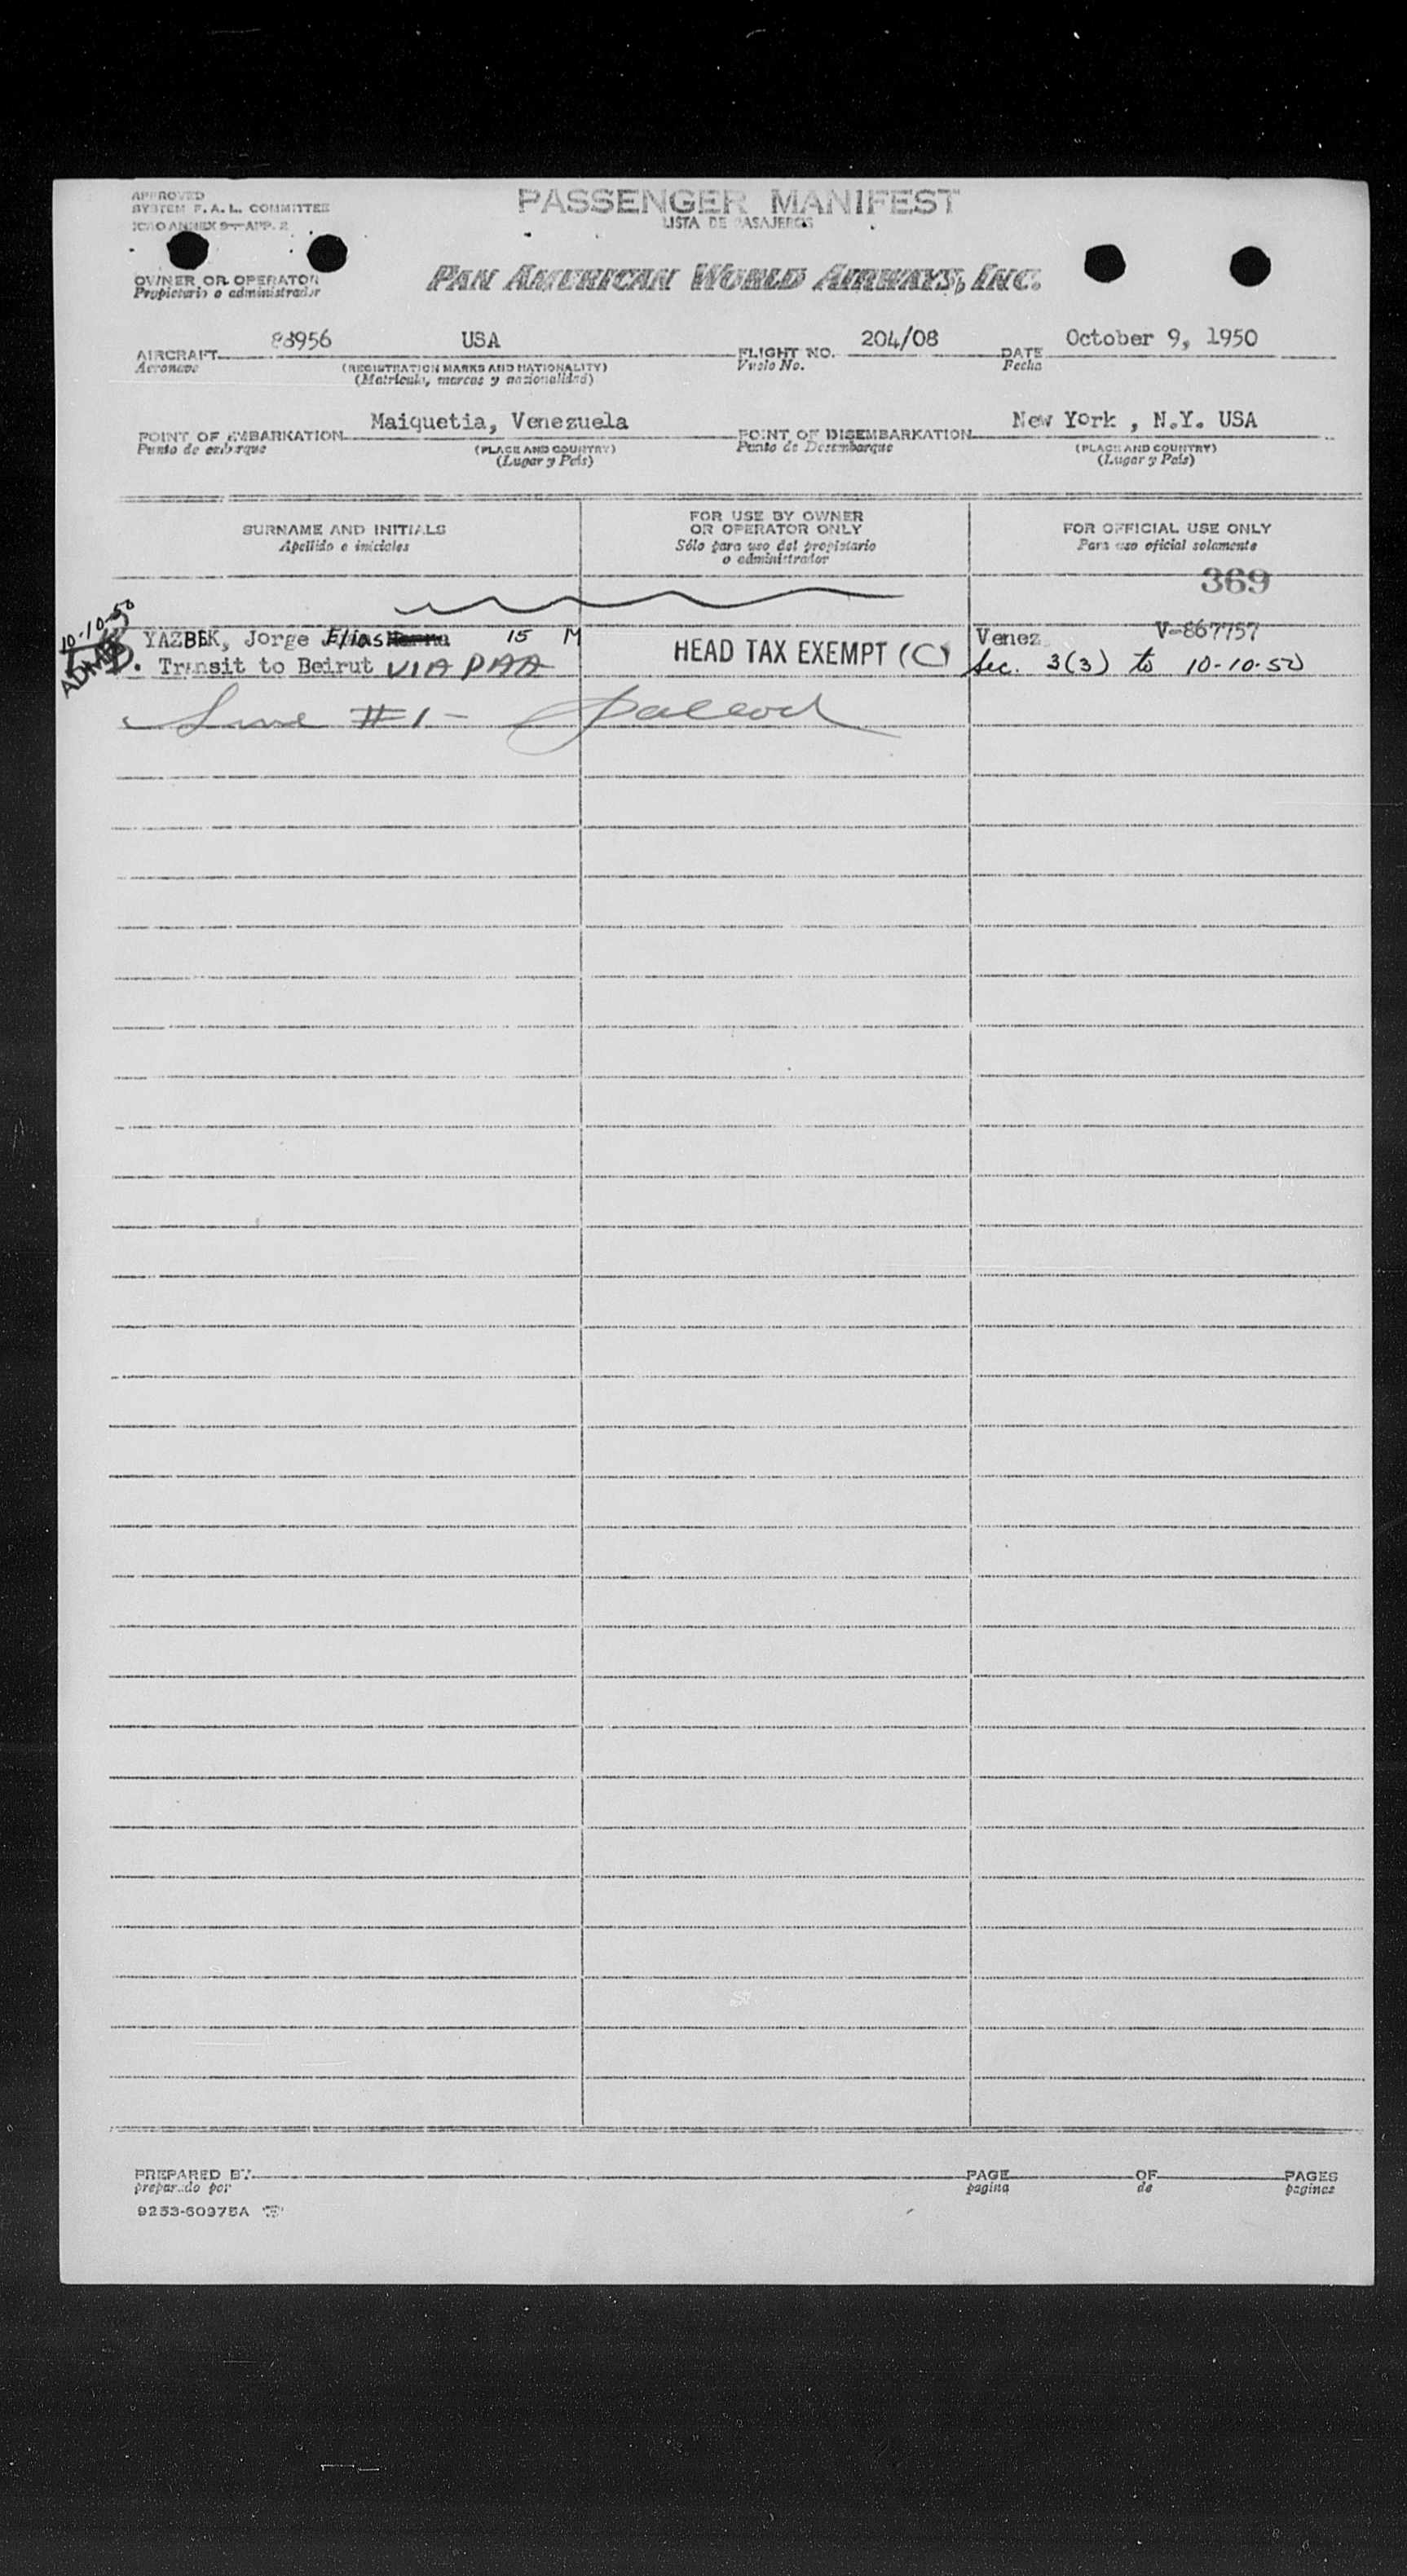 APPROVED
SYSTEM F. A. L. COMMITTEE
ICAO ANNEX 9-APP. 2
PASSENGER MANIFEST
LISTA DE PASAJEROS
OWNER OR OPERATOR
Propietario o administrador
PAN AMERICAN WORLD AIRWAYS, INC.
AIRCRAFT 88956 USA FLIGHT NO. 204/08 DATE October 9, 1950
Aeronave (REGISTRATION MARKS AND NATIONALITY) Vuelo No. Fecha
(Matricula, marcas y nacionalidad)
POINT OF EMBARKATION Maiquetia, Venezuela POINT OF DISEMBARKATION New York , N.Y. USA
Punto de embarque (PLACE AND COUNTRY) Punto de Desembarque (PLACE AND COUNTRY)
(Lugar y País) (Lugar y País)
SURNAME AND INITIALS
Apellido e iniciales
FOR USE BY OWNER
OR OPERATOR ONLY
Sólo para uso del propietario
o administrador
FOR OFFICIAL USE ONLY
Para uso oficial solamente
369
10-10-50
YAZBEK, Jorge Elias 15 M
Transit to Beirut VIA PAA
HEAD TAX EXEMPT (C)
Venez V-867757
Sec. 3(3) to 10-10-50
Line #1-
PREPARED BY PAGE OF PAGES
preparado por pagina de paginas
9253-60975A